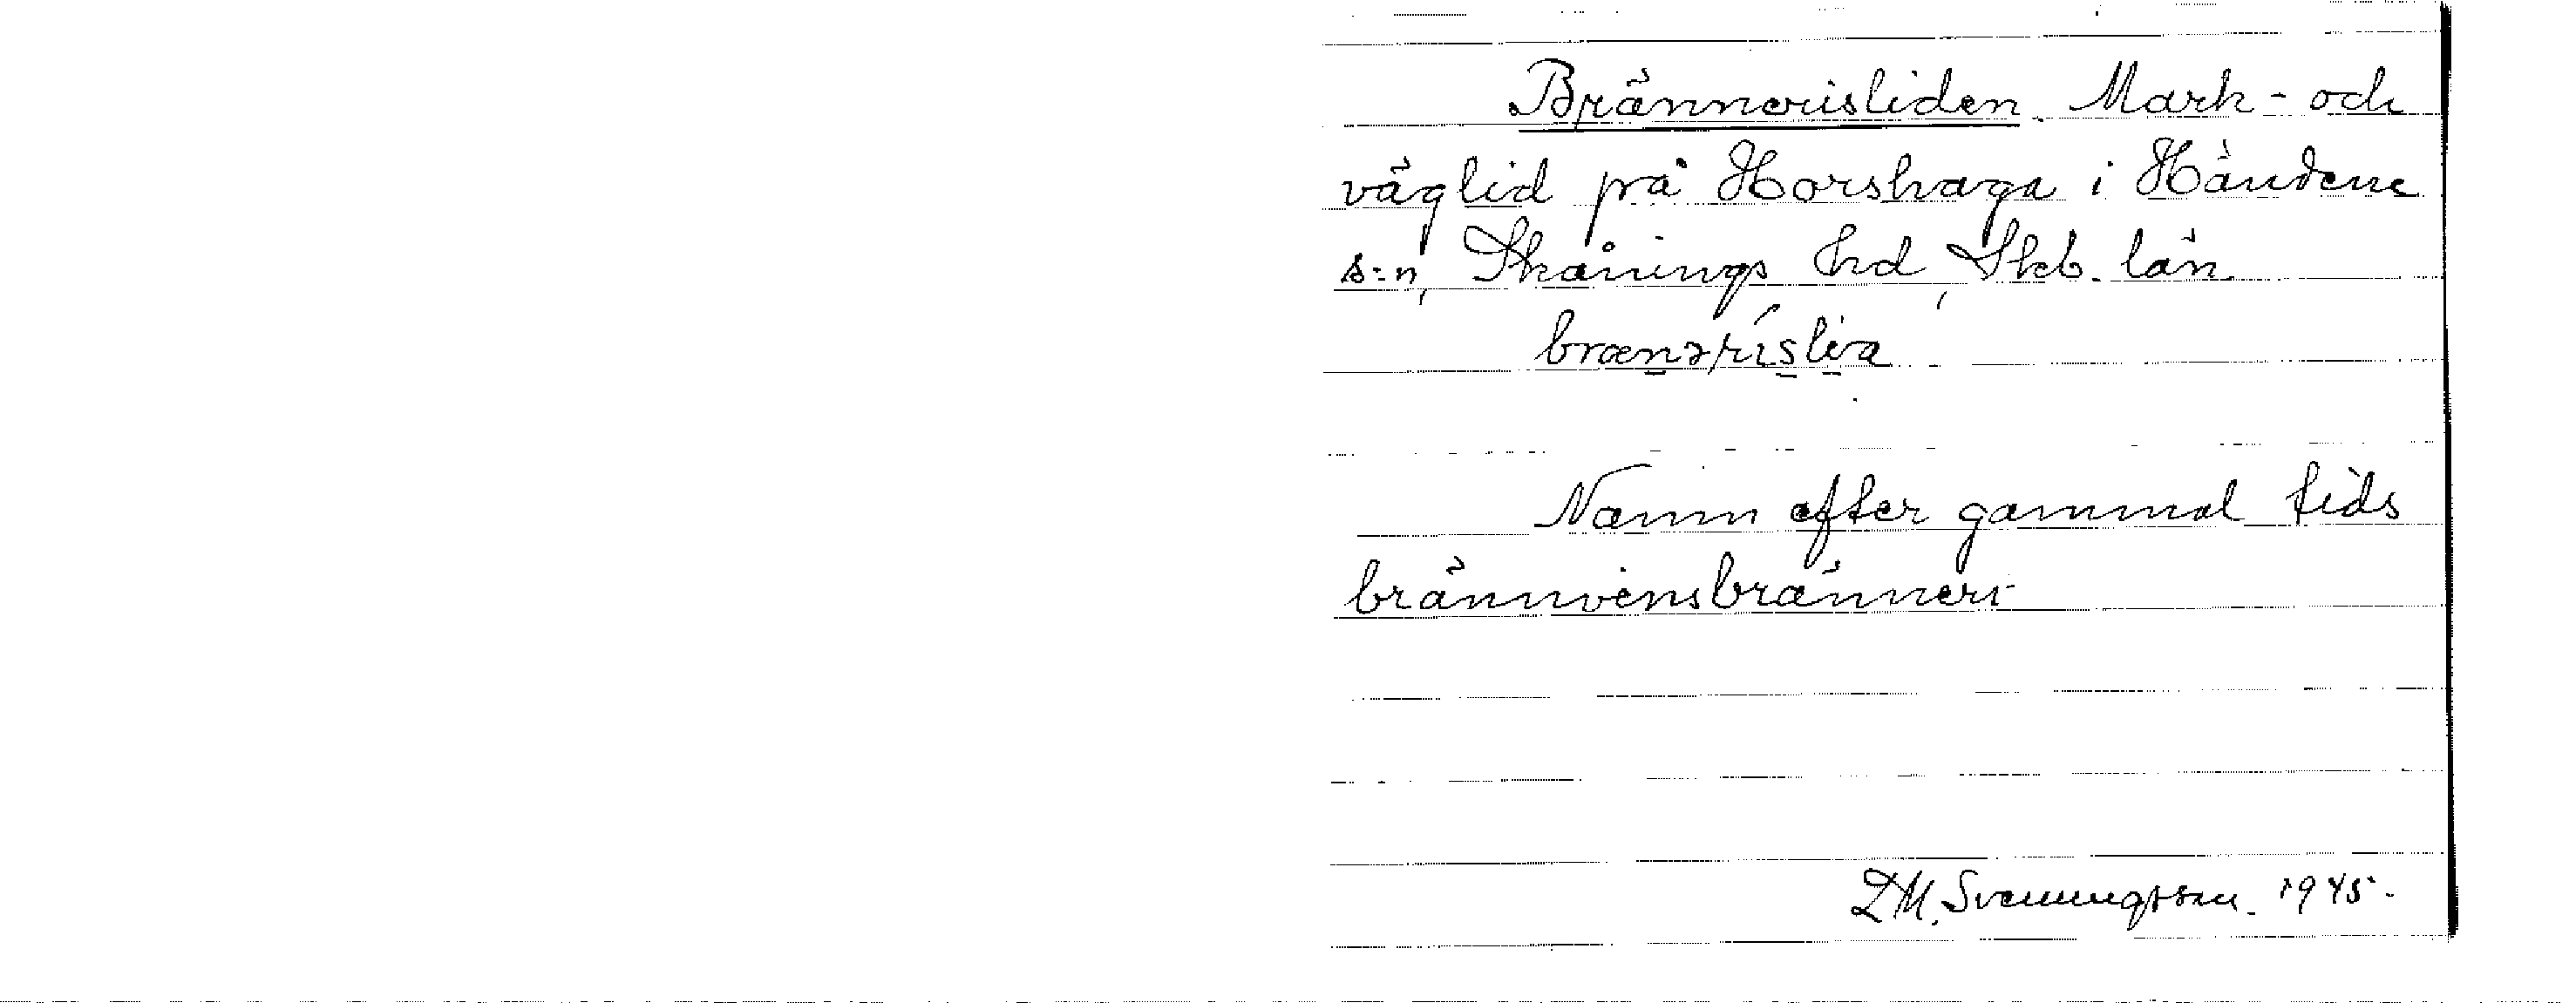 Brännerisliden. Mark- och
väglid på Horshaga i Händene
s:n, Skånings hd, Skb. län.
brænərisli̱a
Namn efter gammal tids
brännvinsbränneri
D.M. Svenungsson. 1945.